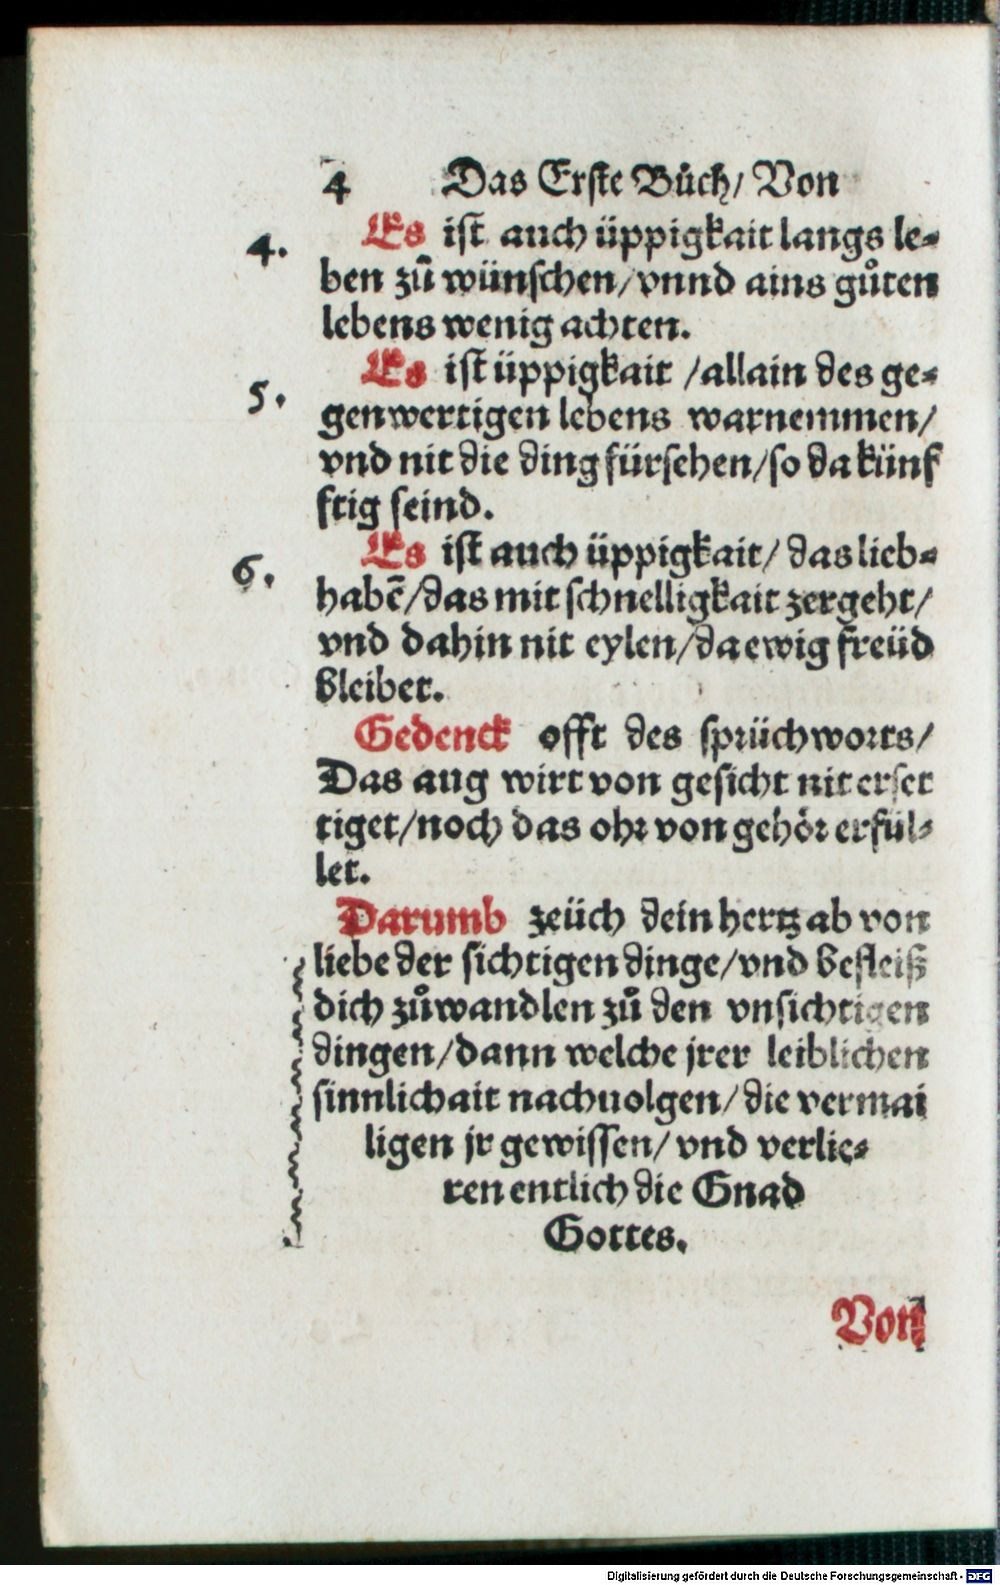 4 Das Erste Bůch/ Von
4. Es ist auch üppigkait langs le-
ben zů wünschen/vnnd ains gůten
lebens wenig achten.
5. Es ist üppigkait /allain des ge-
genwertigen lebens warnemmen/
vnd nit die ding fürsehen/so da künf
ftig seind.
6. Es ist auch üppigkait/ das lieb-
habẽ/das mit schnelligkait zergeht/
vnd dahin nit eylen/da ewig freüd
bleibet.
Gedenck offt des sprüchworts/
Das aug wirt von gesicht nit erset
tiget/noch das ohr von gehör erfül-
let.
Darumb zeüch dein hertz ab von
liebe der sichtigen dinge/vnd befleiß
dich zůwandlen zů den vnsichtigen
dingen/dann welche jrer leiblichen
sinnlichait nachuolgen/die vermai
ligen jr gewissen/ vnd verlie-
ren entlich die Gnad
Gottes.
Von
Digitalisierung gefördert durch die Deutsche Forschungsgemeinschaft - DFG